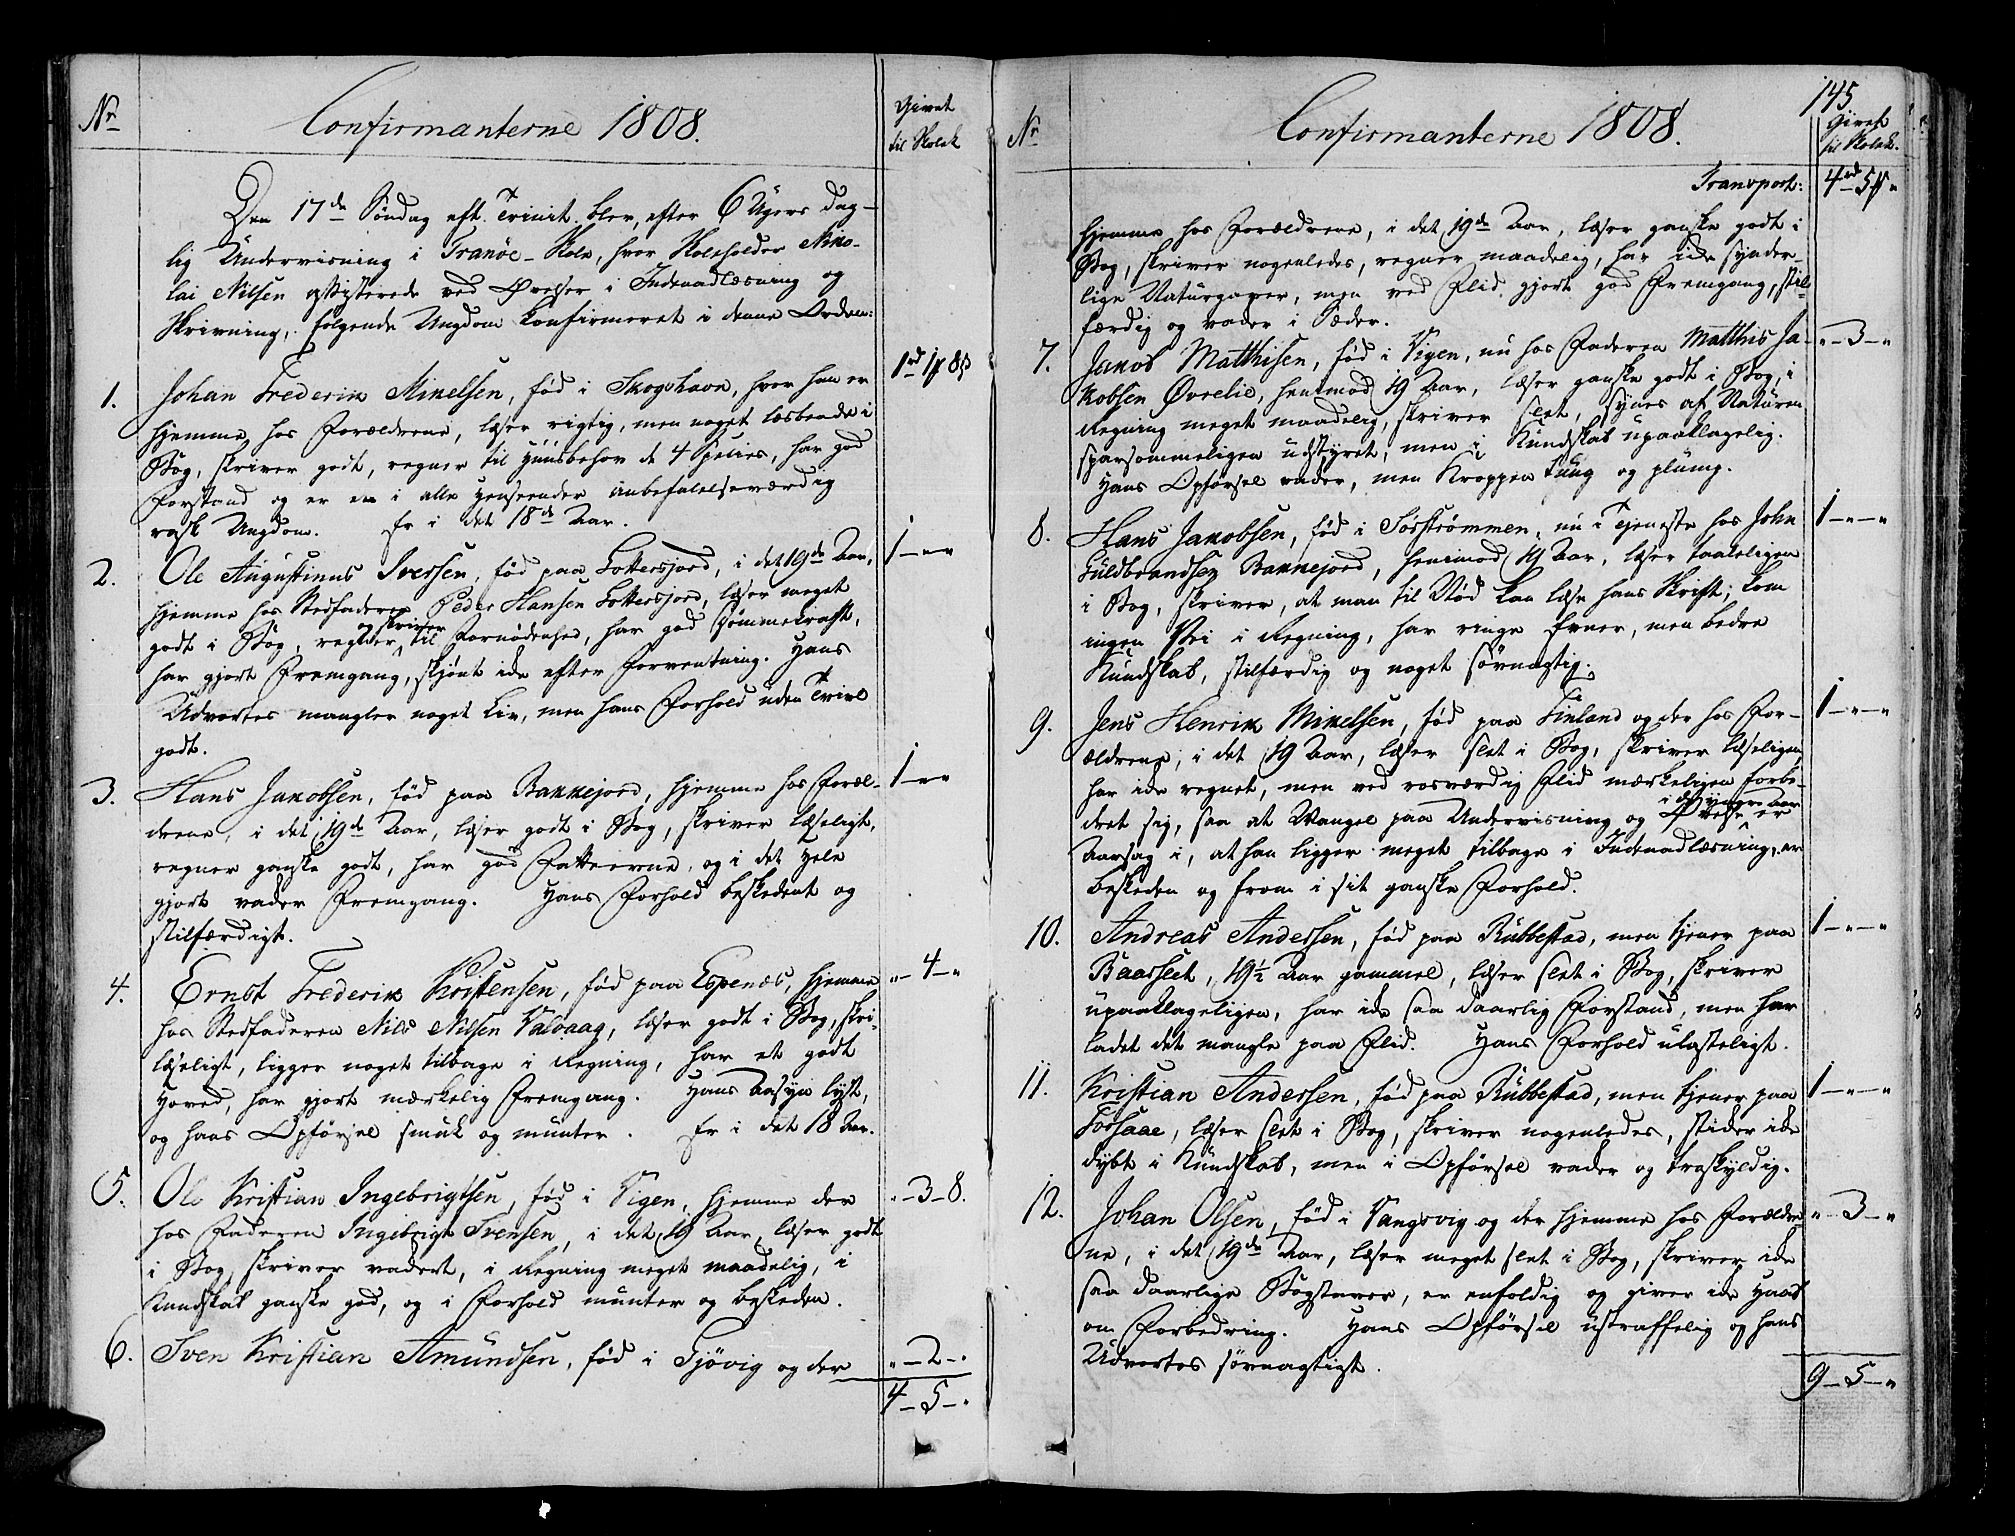 Nr
Confirmanterne 1808.
Givet
til Skolek
Den 17de Søndag eft. Trinit. blev, efter 6 Ugers dag-
lig Undervisning i Tranöe-Skole, hvor Skoleholder Niko-
lai Nilsen assisterede ved Øvelser i Indenadlæsning og
Skrivning, følgende Ungdom konfirmeret i denne Orden:
1. Johan Frederik Mikelsen, fød i Skogshavn, hvor han er
hjemme hos Forældrene, læser rigtig, men noget læspende i
Bog, skriver godt, regner til Huusbehov de 4 Species, har god
Forstand og er en i alle Henseender anbefalelseværdig
rask Ungdom. Er i det 18de Aar.
1rd 1 8s
2. Ole Augustinus Iversen, fød paa Lottersjord, i det 19de Aar,
hjemme hos Stedfaderen Peder Hansen Lottersjor, læser meget
godt i Bog, regner og skriver til Fornødenhed, har god Nemmekraft,
har gjort Fremgang, skjønt ikke efter Forventning. Hans
Udvortes mangler noget Liv, men hans Forhold uden Tvivl
godt.
1 - " - "
3. Hans Jakobsen, fød paa Bakkejord, hjemme hos Foræl-
drene, i det 19de Aar, læser godt i Bog, skriver læseligt,
regner ganske godt, har god Fatteevne, og i det Hele
gjort vakker Fremgang. Hans Forhold beskedent og
stilfærdigt.
1 - " - "
4. Ernst Frederik Kristensen, fød paa Espenæs, hjemme
hos Stedfaderen Nils Nilsen Valvaag, læser godt i Bog, skri-
læseligt, ligger noget tilbage i Regning, har et godt
Hoved, har gjort mærkelig Fremgang. Hans Aasyn lyst,
og hans Opførsel smuk og munter. Er i det 18 Aar.
" - 4 - "
5. Ole Kristian Ingebrigtsen, fød i Vigen, hjemme der
hos Faderen Ingebrigt Svensen, i det 19 Aar, læser godt
i Bog, skriver vakkert, i Regning meget maadelig, i
Kundskab ganske god, og i Forhold munter og beskeden.
" - 3 - 8.
6. Sven Kristian Amundsen, fød i Gjøvig og der
" - 2 - "
4 - 5 - "
145
Nr
Confirmanterne 1808.
Givet
til Skolek.
Transport: 4rd 5 "
hjemme hos Forældrene, i det 19de Aar, læser ganske godt i
Bog, skriver nogenledes, regner maadelig, har ikke synder-
lige Naturgaver, men ved Flid gjort god Fremgang, stil-
færdig og vakker i Sæder.
7. Jakob Matthisen, fød i Vigen, nu hos Faderen Matthis Ja-
kobsen Øvrelie, henimod 19 Aar, læser ganske godt i Bog, i
Regning meget maadelig, skriver slet, synes af Naturen
sparsommeligen udstyret, men i Kundskab upaaklagelig.
Hans Opførsel vakker, men Kroppen tung og plump.
" - 3 - "
8. Hans Jakobsen, fød i Sørstrømmen, nu i Tjeneste hos John
Guldbrandsen Bakkejord, henimod 19 Aar, læser taaleligen
i Bog, skriver, at man til Nød kan læse hans Skrift; kom
ingen Vei i Regning, har ringe Evner, men bedre
Kundskab, stilfærdig og noget søvnagtig.
1 - " - "
9. Jens Henrik Mikelsen, fød paa Finland og der hos For-
ældrene, i det 19 Aar, læser slet i Bog, skriver læseligen
har ikke regnet, men ved rosværdig Flid mærkeligen forbe-
dret sig, saa at Mangel paa Undervisning og Øvelse i de yngre Aar er
Aarsag i, at han ligger meget tilbage i Indenadlæsning, er
beskeden og from i sit ganske Forhold.
1 - " - "
10. Andreas Andersen, fød paa Rubbestad, men tjener paa
Baarslet, 19½ Aar gammel, læser slet i Bog, skriver
upaaklageligen, har ikke saa daarlig Forstand, men har
ladet det mangle paa Flid. Hans Forhold ulasteligt.
1 - " - "
11. Kristian Andersen, fød paa Rubbestad, men tjener paa
Forsaae, læser slet i Bog, skriver nogenledes, stikker ikke
dybt i Kundskab, men i Opførsel vakker og troskyldig.
1 - " - "
12. Johan Olsen, fød i Vangsvig og der hjemme hos Forældre-
ne, i det 19de Aar, læser meget slet i Bog, skriver ikke
saa daarlige Bogstaver, er enfoldig og giver ikke Haab
om Forbedring. Hans Opførsel ustraffelig og hans
Udvortes søvnagtigt.
" - 3 - "
9 - 5 - "